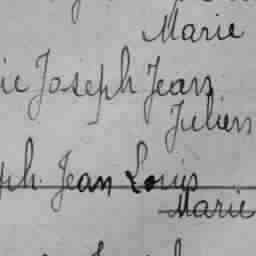 Marie
ie Joseph Jean
Julien
ph. Jean Louis
Marie